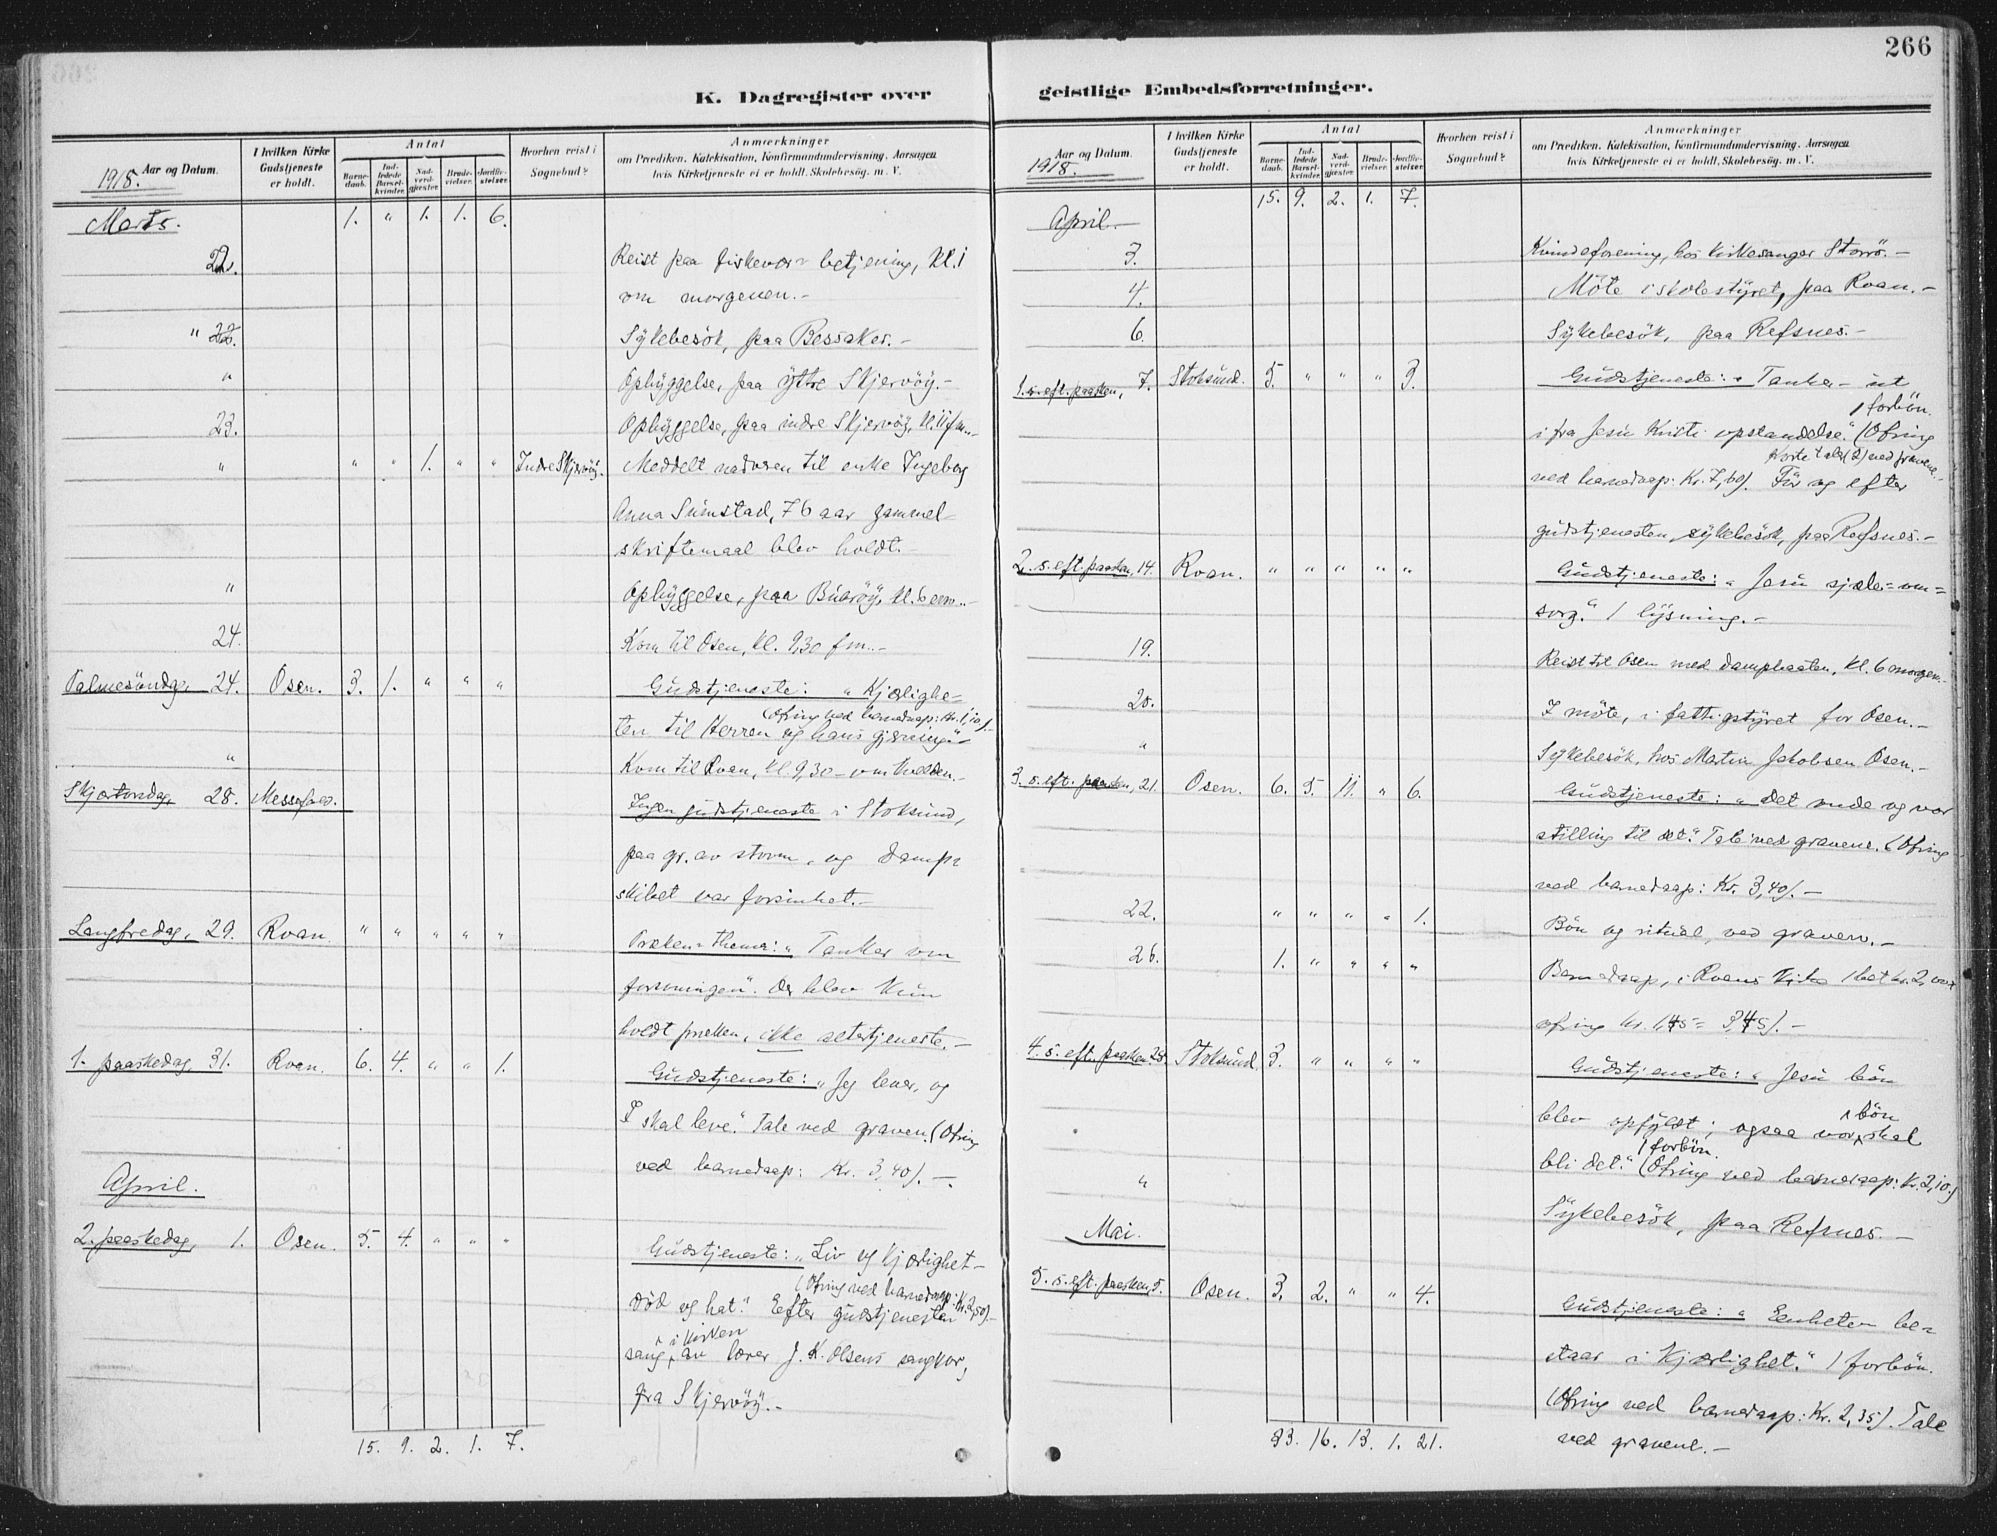 266
K. Dagregister over
Aar og Datum.
I hvilken Kirke Gudstjeneste er holdt.
Antal
Barnedaab.
Indledede Barselkvinder.
Nadverdgjester.
Brudevielser.
Jordfæstelser.
Hvorhen reist i Sognebud?
Anmærkninger
om Prædiken. Katekisation, Konfirmandundervisning. Aarsagen
hvis Kirketjeneste ei er holdt. Skolebesøg. m. V.
1918.
Marts. 1. " 1. 1. 6.
22. Reist paa fiskevær-betjening, kl. 1
om morgenen.-
" 22. Sykebesök, paa Bessaker.-
" Opbyggelse, paa Yttre Skjervöy.-
23. Opbyggelse, paa indre Skjervöy, kl. 11 fm.-
" " " 1. " " Indre Skjervöy. Meddelt nadveren til enke Ingeborg
Anna Sumstad, 76 aar gammel-
skriftemaal blev holdt.-
" Opbyggelse, paa Buaröy, kl. 6 em.-
24. Kom til Osen, kl. 9,30 fm.-
Palmesöndag, 24. Osen. 3. 1. " " " Gudstjeneste: "Kjærlighe-
(Ofring ved barnedaap: Kr. 1,10).-
ten til Herren og hans gjerning"-
" Kom til Roan, kl. 9,30 - om kvelden.-
Skjærtorsdag, 28. Messefald. Ingen gudstjeneste i Stoksund,
paa gr. av storm, og damp-
skibet var forsinket.-
Langfredag, 29. Roan. " " " " " Præken-thema: "Tanker om
forsoningen". Der blev kun
holdt præken, ikke altertjeneste.-
1. paaskedag, 31. Roan. 6. 4. " " 1. Gudstjeneste: "Jeg lever, og
I skal leve." Tale ved graven. (Ofring
ved barnedaap: Kr. 3,40).-
April.
2. paaskedag, 1. Osen. 5. 4. " " " Gudstjeneste: "Liv og kjærlighet-
(Ofring ved barnedaap: Kr. 2,50).-
död og hat." Efter gudstjenesten
i kirken
sang av lærer J. K. Olsens sangkor,
fra Skjervöy.-
15. 9. 2. 1. 7.
geistlige Embedsforretninger.
Aar og Datum.
I hvilken Kirke Gudstjeneste er holdt.
Antal
Barnedaab.
Indledede Barselkvinder.
Nadverdgjester.
Brudevielser.
Jordfæstelser.
Hvorhen reist i Sognebud?
Anmærkninger
om Prædiken. Katekisation, Konfirmandundervisning. Aarsagen
hvis Kirketjeneste ei er holdt. Skolebesøg. m. V.
1918.
April. 15. 9. 2. 1. 7.
3. Kvindeforening, hos kirkesanger Storrö.-
4. Möte i skolestyret, paa Roan.-
6. Sykebesök, paa Refsnes.-
1. s. eft. paasken, 7. Stoksund. 5. " " " 3. Gudstjeneste: "Tanker - ut
1 forbön.
ifra Jesu Kristi opstandelse." (Ofring
Korte taler (2) ved gravene.
ved barnedaap: Kr. 7,60). För og efter
gudstjenesten, sykebesök, paa Refsnes.-
2. s. eft. paasken, 14. Roan. " " " " " Gudstjeneste: "Jesu sjæle-om-
sorg." 1 lysning.-
19. Reist til Osen med dampbaaten, kl. 6 morgen.-
20. I möte, i fattigstyret for Osen.-
" Sykebesök, hos Martin Jakobsen Osen.-
3. s. eft. paasken, 21. Osen. 6. 5. 11. " 6. Gudstjeneste: "Det onde og vor
stilling til det." Tale ved gravene. (Ofring
ved barnedaap: Kr. 3,40).-
22. " " " " 1. Bön og ritual, ved graven.-
26. 1. " " " " Barnedaap, i Roans kirke
ofring kr. 1,45 = 3,45).-
4. s. eft. paasken 28. Stoksund. 3. " " " " Gudstjeneste: "Jesu bön
bön
blev opfyldt; ogsaa vor skal
1 forbön.
bli det." (Ofring ved barnedaap: Kr. 2,10.)
" Sykebesök, paa Refsnes.-
Mai.
5. s. eft. paasken, 5. Osen. 3. 2. " " 4. Gudstjeneste: "Eenheten be-
staar i kjærlighet." 1 forbön.
(Ofring ved barnedaap: Kr. 2,35). Tale
ved gravene.-
33. 16. 13. 1. 21.